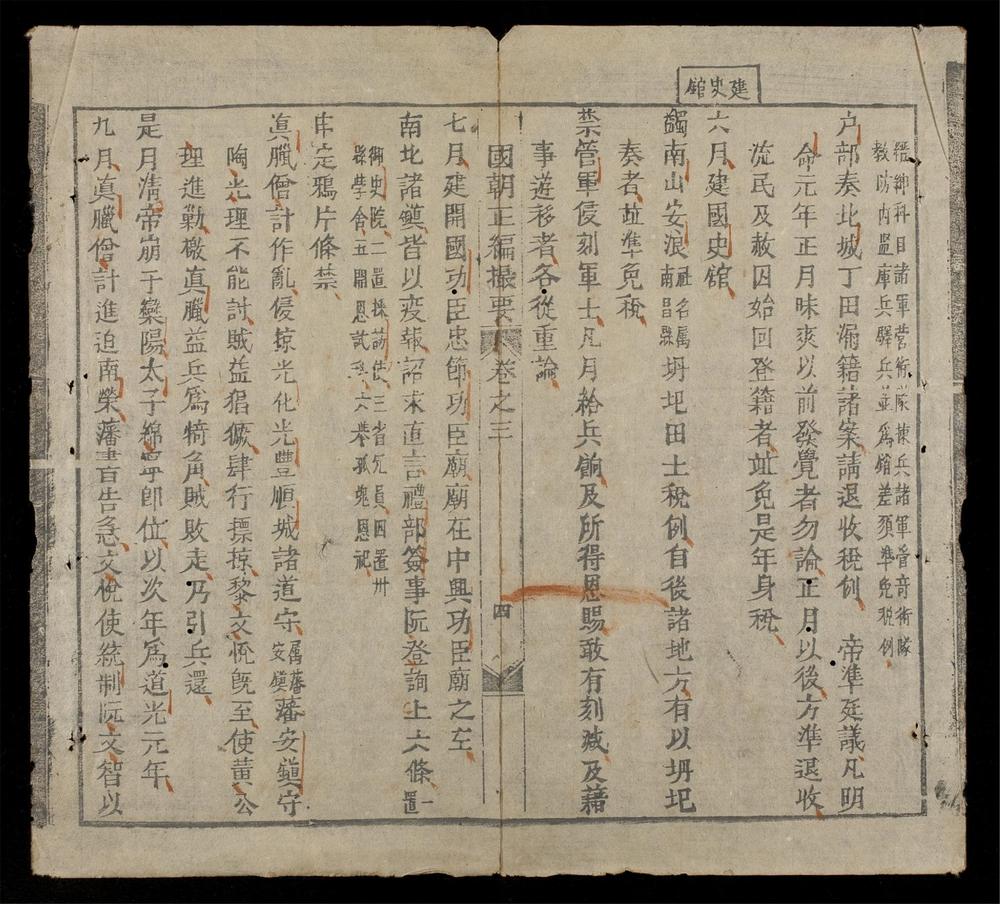 建史館
縉紳科目諸軍營術隊揀兵諸軍管奇術隊
教坊內監庫兵驛兵並為館差須準免税例
户部奏北城丁田漏籍諸案請退收税例 帝準廷議凡明
命元年正月昧爽以前發覺者勿論正月以後方準退收
流民及赦囚始回登籍者並免是年身税
六月建國史館
蠲南山安浪社名属南昌縣坍圯田土税例自後諸地方有以坍圯
奏者並準免税
禁管軍侵刻軍士凡月給兵餉及所得恩賜敢有刻減及藉
事遊移者各從重論
國朝正編撮要 卷之三 四
七月建開國功臣忠節功臣廟廟在中興功臣廟之左
南北諸鎮皆以疫報詔求直言禮部簽事阮登詢上六條一置
御史院二置採訪使三省冗員四置州
縣學舍五開恩試科六祭孤魂恩祀
申定鴉片條禁
真臘僧計作亂侵掠光化光豐順城諸道守属藩安鎮藩安鎮守
陶光理不能討賊益猖獗肆行摽掠黎文悅既至使黃公
理進勦檄真臘益兵為犄角賊敗走乃引兵還
是月清帝崩于欒陽太子綿寧卽位以次年為道光元年
九月真臘僧計進迫南榮藩書告急文悅使統制阮文智以